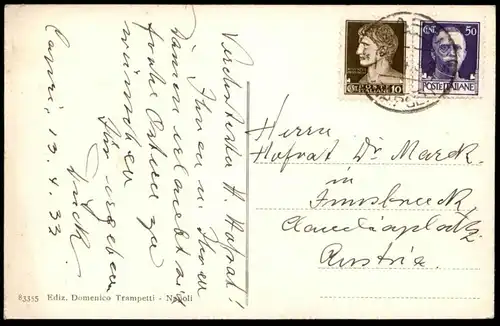 Verehrtester H. Hofrat!
Ihnen u. Ihren
Damen erlaubt sich
frohe Ostern zu
wünschen
Ihr ergeben
Capri, 13. 4. 33
Herrn
Hofrat Dr March
in
Innsbruck
Claudiaplatz
Austria
83355 Ediz. Domenico Trampetti - Napoli
10
CENT. 50
POSTE ITALIANE